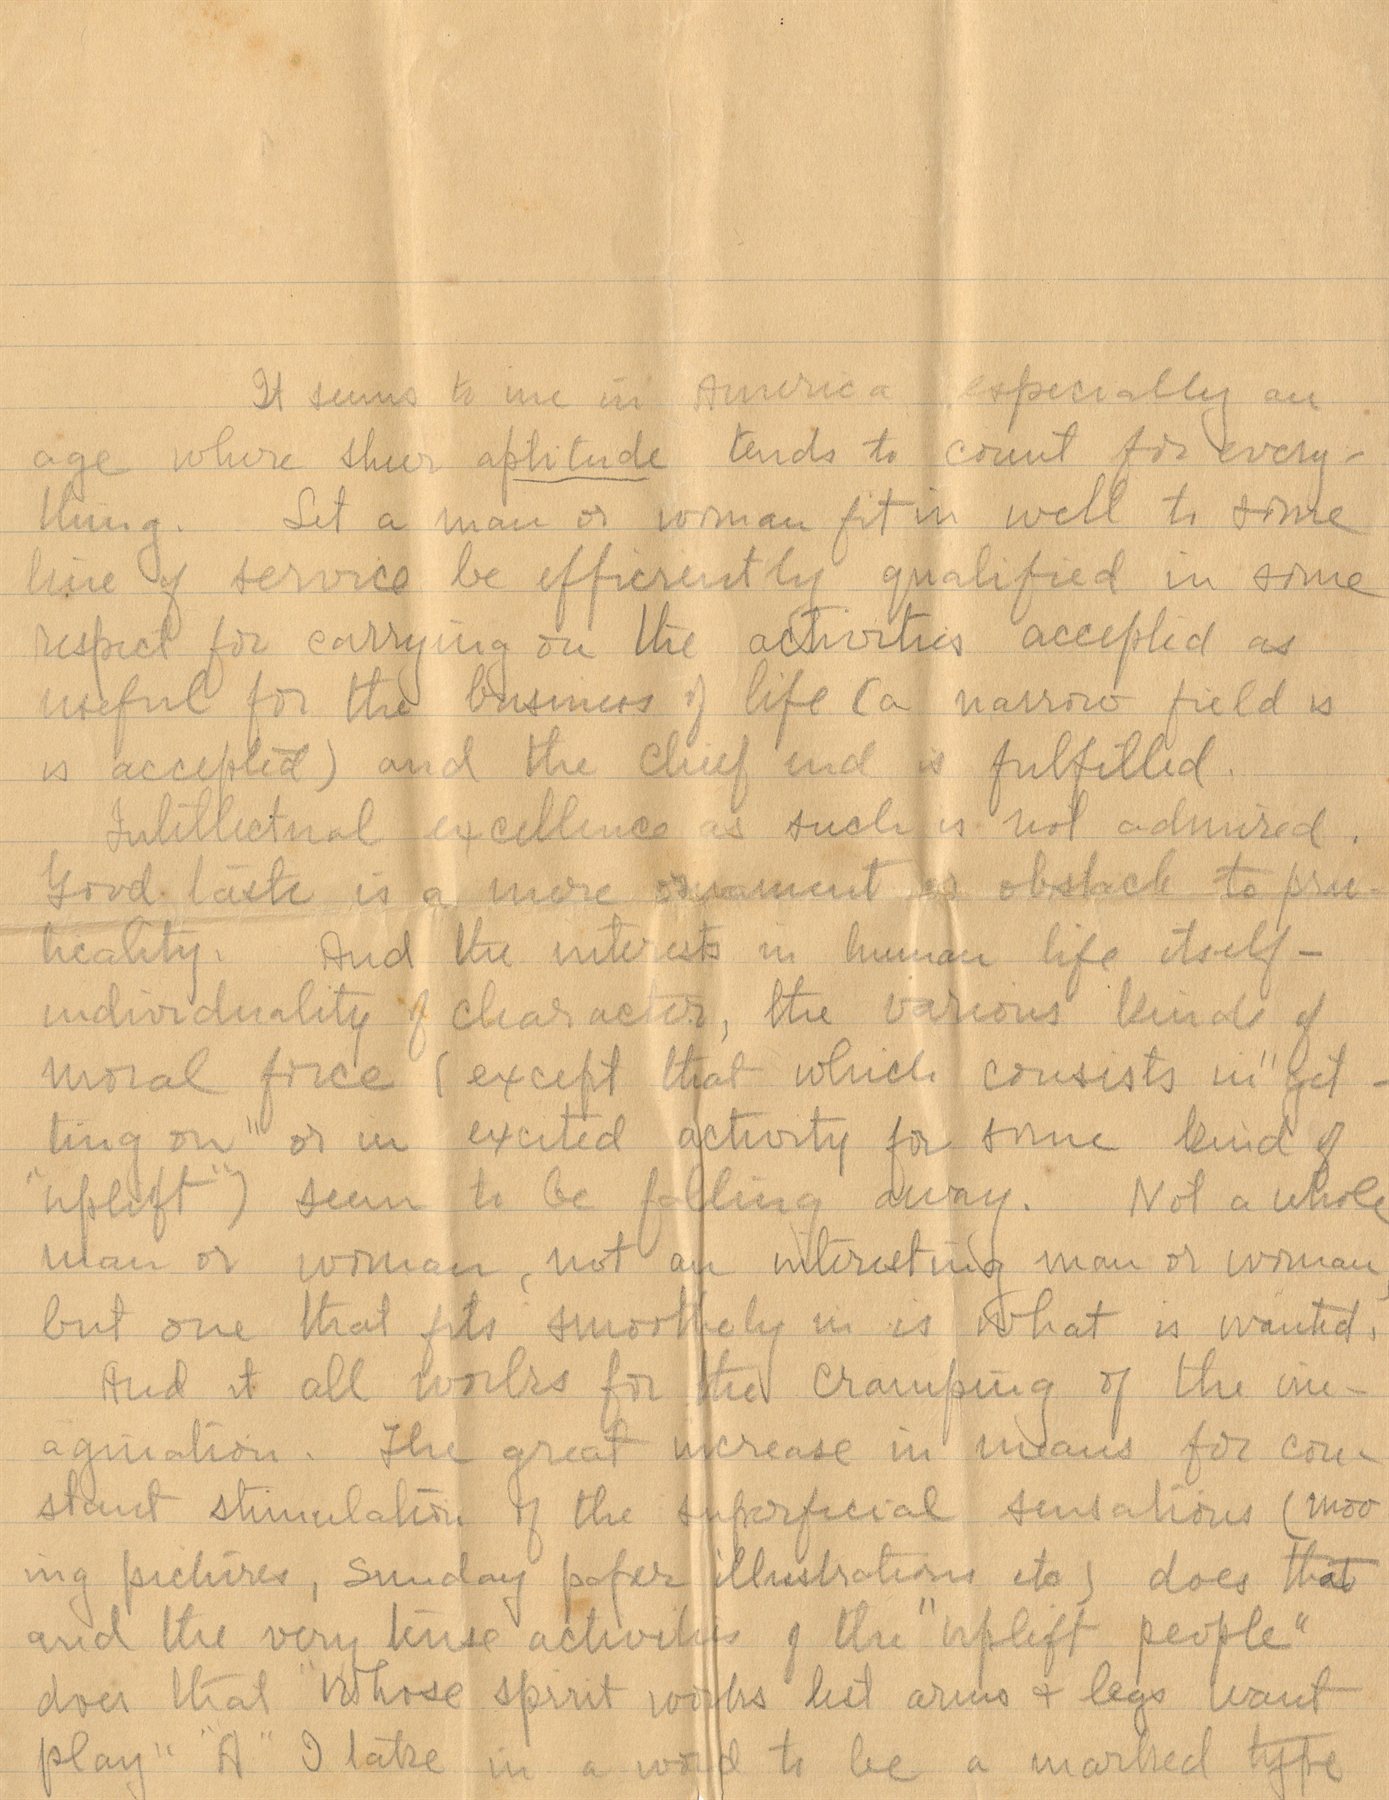 It seems to me in America especially an
age where sheer aptitude tends to count for every-
thing. Let a man or woman fit in well to some
line of service be efficiently qualified in some
respect for carrying on the activities accepted as
useful for the business of life (a narrow field is
is accepted) and the chief end is fulfilled.
Intellectual excellence as such is not admired.
Good taste is a mere ornament or obstacle to prac-
ticality. And the interests in human life itself-
individuality of character, the various kinds of
moral force (except that which consists in "get-
ting on" or in excited activity for some kind of
"uplift") seem to be falling away. Not a whole
man or woman, not an interesting man or woman,
but one that fits smoothely in is what is wanted.
And it all works for the cramping of the im-
agination. The great increase in means for con-
stant stimulation of the superficial sensations (mov
ing pictures, Sunday paper illustrations etc) does that
and the very tense activities of the "uplift people"
does that "Whose spirit works lest arms & legs want
play" "A" I take in a word to be a marked type